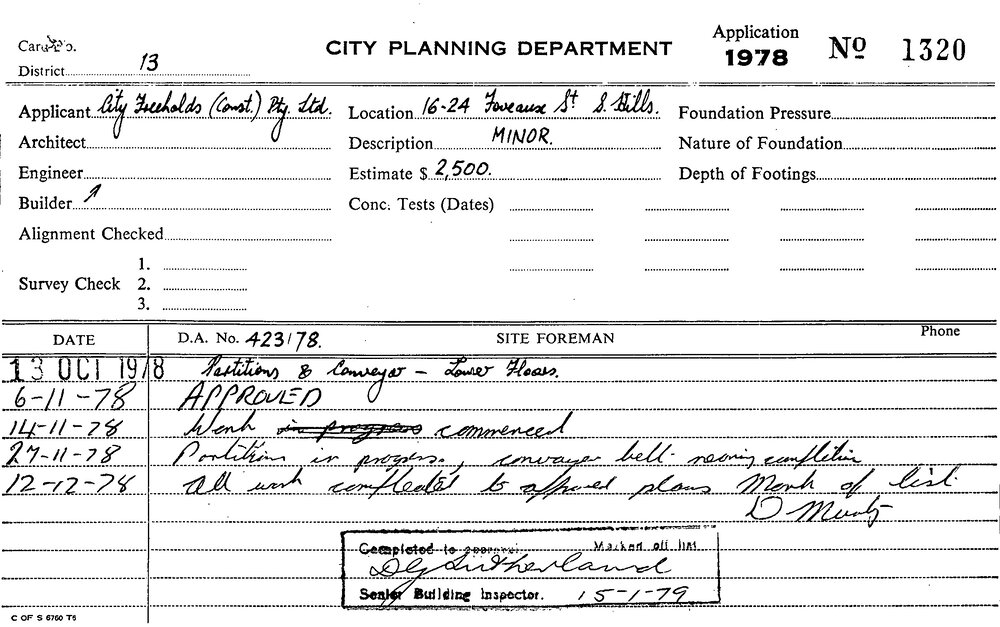 Card No.
CITY PLANNING DEPARTMENT
Application
1978 No 1320
District 13
Applicant City Freeholds (Const.) Pty. Ltd. Location 16-24 Foveaux St S. Hills. Foundation Pressure
Architect Description MINOR. Nature of Foundation
Engineer Estimate $ 2,500. Depth of Footings
Builder Conc. Tests (Dates)
Alignment Checked
1.
Survey Check 2.
3.
DATE D.A. No. 423/78. SITE FOREMAN Phone
13 OCT 1978 Partitions & Conveyor – Lower Floors.
6-11-78 APPROVED
14-11-78 Work in progress commenced
27-11-78 Partitions in progress, convayer belt nearing complition
12-12-78 All work compleated to approved plans Mark of list.
D
Completed to approval Marked off list
DG Sutherland
Senior Building Inspector. 15-1-79
C OF S 6760 T6